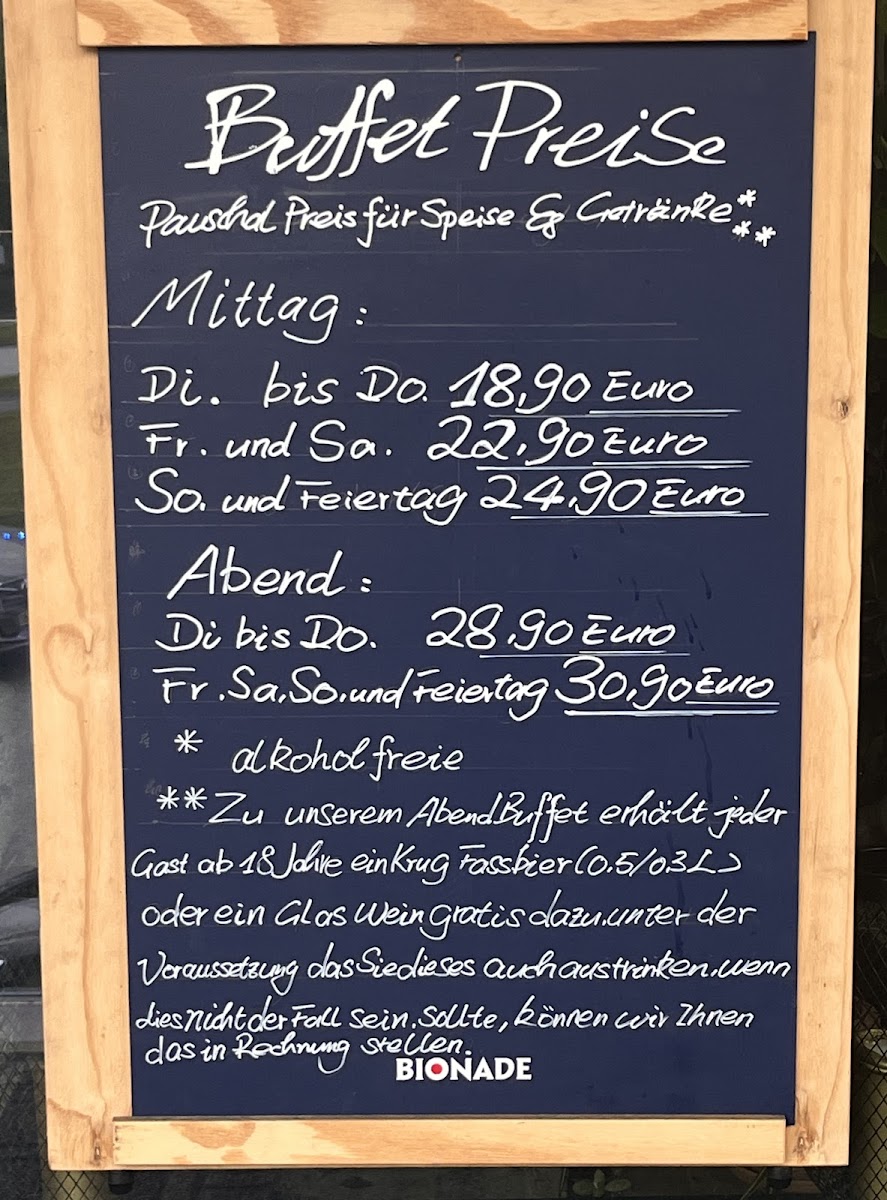 Buffet Preise
Pauschal Preis für Speise & Getränke*
**
Mittag:
Di. bis Do. 18,90 Euro
Fr. und Sa. 22,90 Euro
So. und Feiertag 24,90 Euro
Abend:
Di bis Do. 28,90 Euro
Fr. Sa, So. und Feiertag 30,90 Euro
* alkoholfreie
** Zu unserem AbendBuffet erhält jeder
Gast ab 18 Jahre ein Krug Fassbier (0.5/0.3L)
oder ein Glas Wein gratis dazu. unter der
Voraussetzung das Sie dieses auch austrinken. wenn
dies nicht der Fall sein. sollte, können wir Ihnen
das in Rechnung stellen.
BIONADE